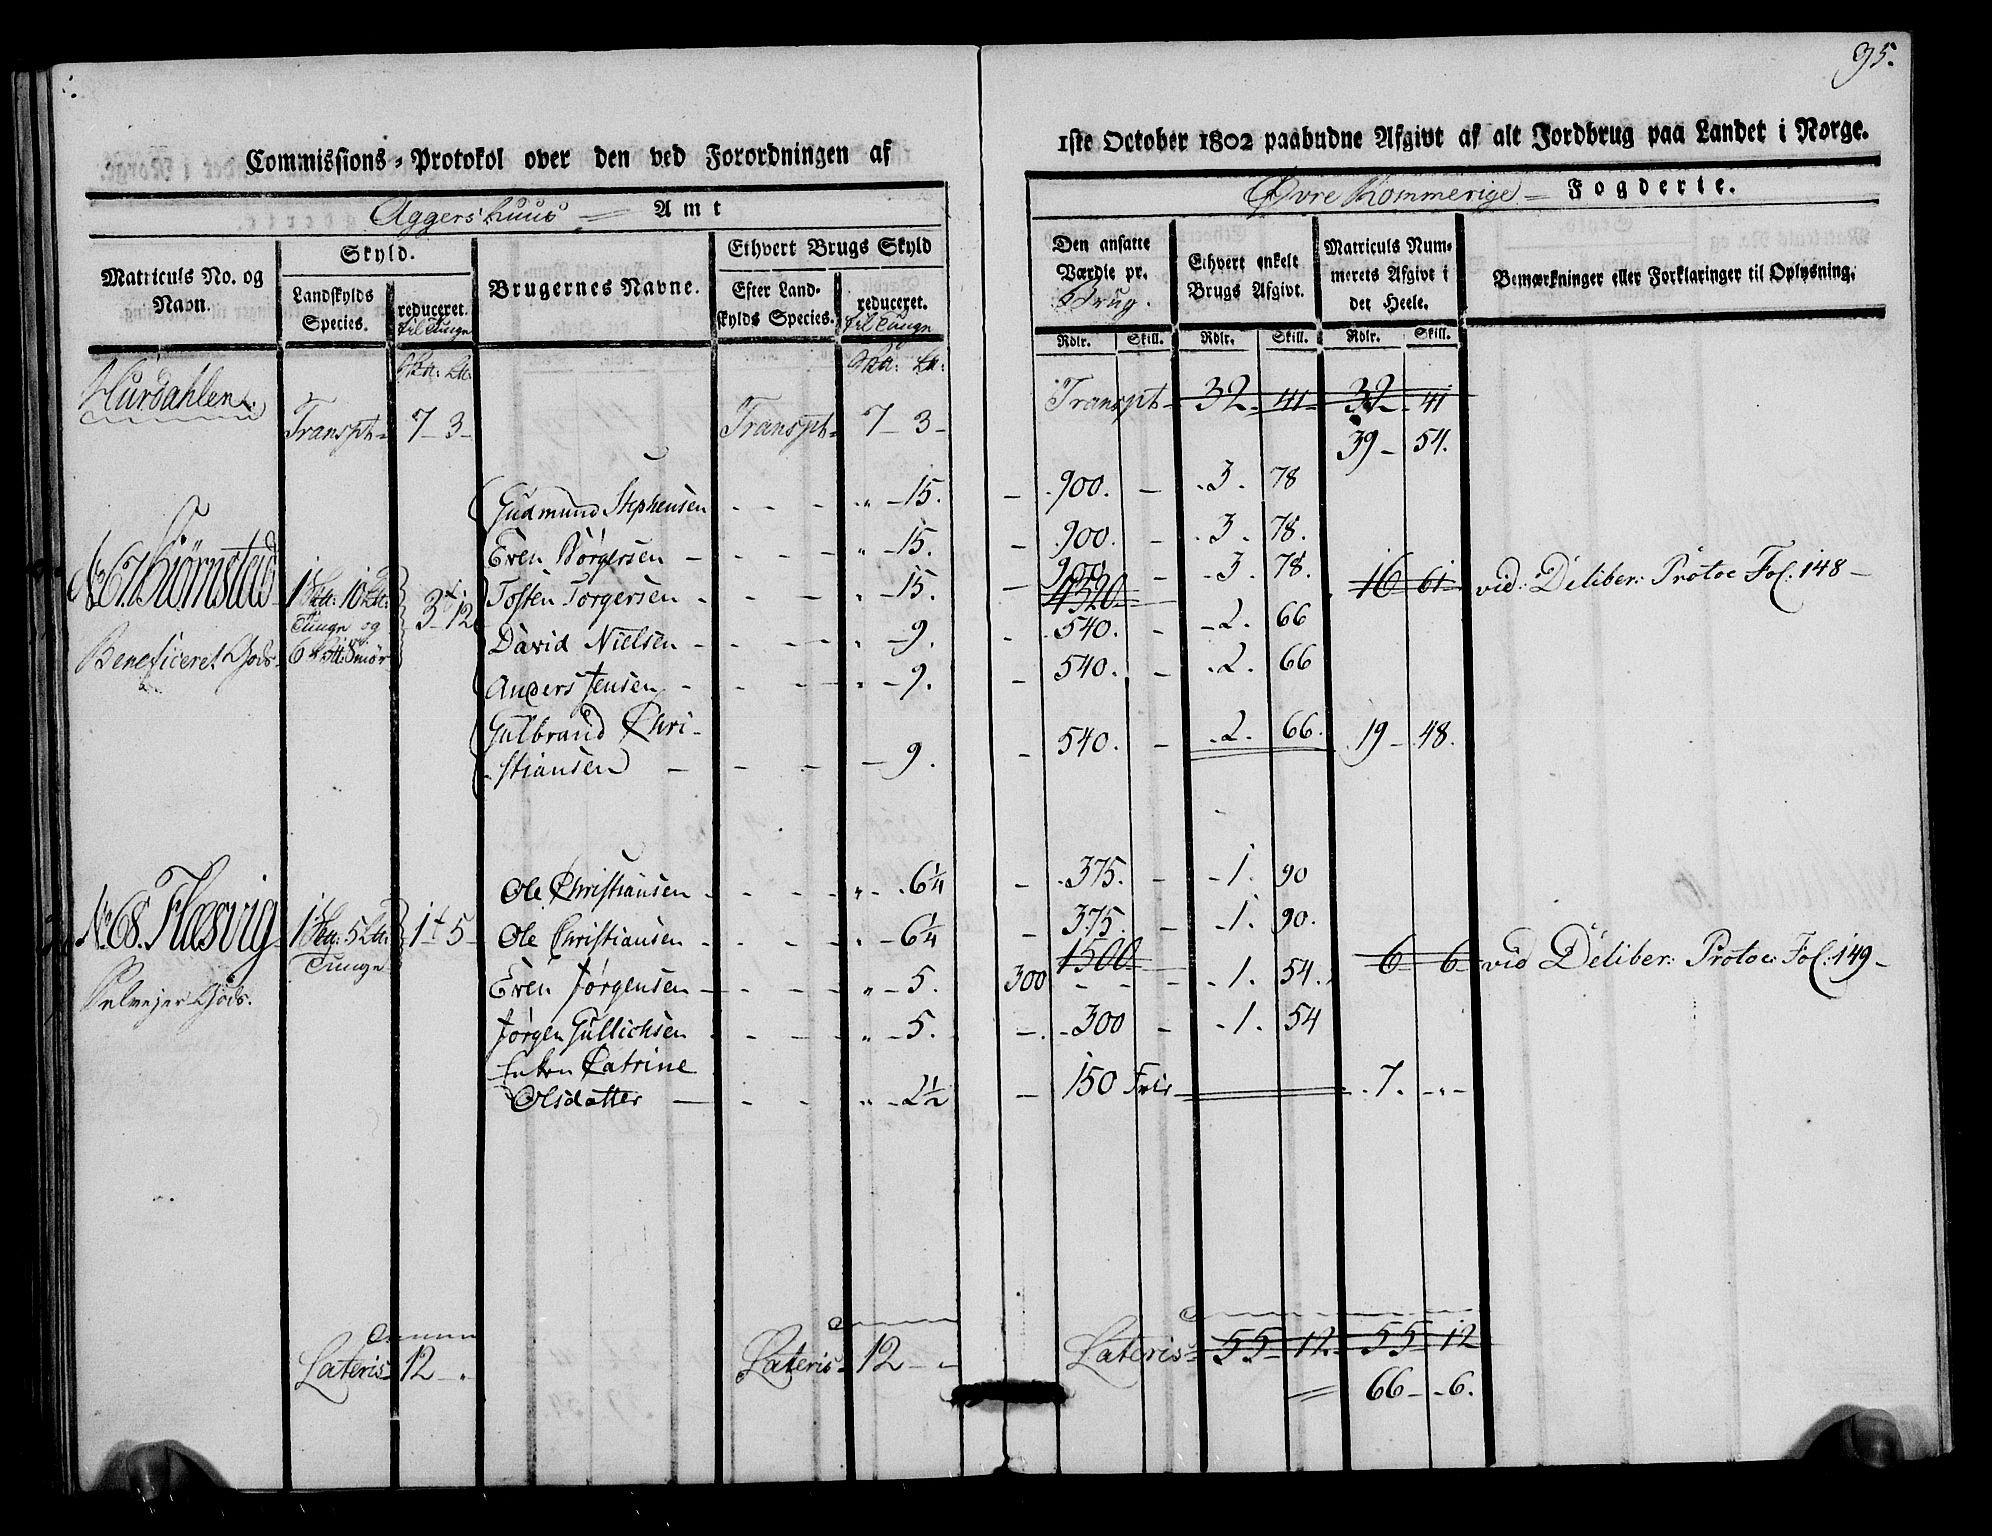 95.
Commissions-Protokol over den ved Forordningen af
1ste October 1802 paabudne Afgivt af alt Jordbrug paa Landet i Norge.
Aggershuus Amt
Øvre Rommerige Fogderie.
Matriculs No. og Navn.
Skyld.
Landskylds Species.
reducert. til Tunge
Brugernes Navne.
Ethvert Brugs Skyld
Efter Landskylds Species.
reduceret. til Tunge
Den ansatte Værdie pr. Brug.
Ethvert enkelt Brugs Afgivt.
Matriculs Nummerets Afgivt i det Heele.
Bemærkninger eller Forklaringer til Oplysning.
Rdlr. Skill. Rdlr. Skill. Rdlr. Skill.
Hurdahlen
Transpt 7 - 3 - Transpt 7 - 3 - Transpt 32 - 41 - 32 - 41
39 - 54.
Gudmund Stephensen - - - " - 15. - 900. - 3. 78
Even Børgersen - - - " - 15. - 900. - 3. 78.
No 67. Kiørnstad 1 10 Tunge og 3 - 12 Tosten Torgersen - - - " - 15. - 900 4320 - 3. 78. 16 61 vid: Deliber: Protoc Fol. 148 -
Beneficeret Gods. 6 Smør David Nielsen - - - " - 9. - 540. - 2. 66
Anders Jensen - - - " - 9. - 540. - 2. 66
Gulbrand Chri-
stiansen - - - - 9. - 540. - 2. 66. 19 - 48.
Ole Christiansen - - - " - 6¼ - 375. - 1. 90
No 68. Flæsvig 1 5 Tunge 1 - 5 Ole Christiansen - - - " - 6¼ - 375. 1500 - 1. 90. 6 - 6 - vid Deliber: Protoc Fol: 149 -
Selvejer Gods.
Even Jørgensen - - - " - 5. 300 - - - 1. 54.
Jørgen Gullichsen - - - " - 5. - 300 - 1. 54
Enken Catrine
Olsdatter - - - " - 2½ - 150 Frie 7. - " -
Lateris 12 - " Lateris 12 - " Lateris 55 - 12. - 55 - 12
66 - 6.